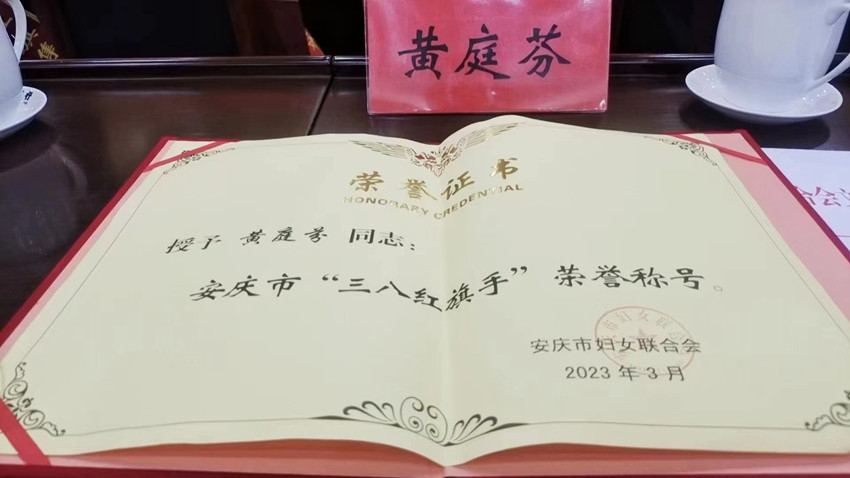 黄庭芬
荣誉证书
HONORARY CREDENTIAL
授予 黄庭芬 同志：
安庆市“三八红旗手”荣誉称号。
安庆市妇女联合会
2023年3月